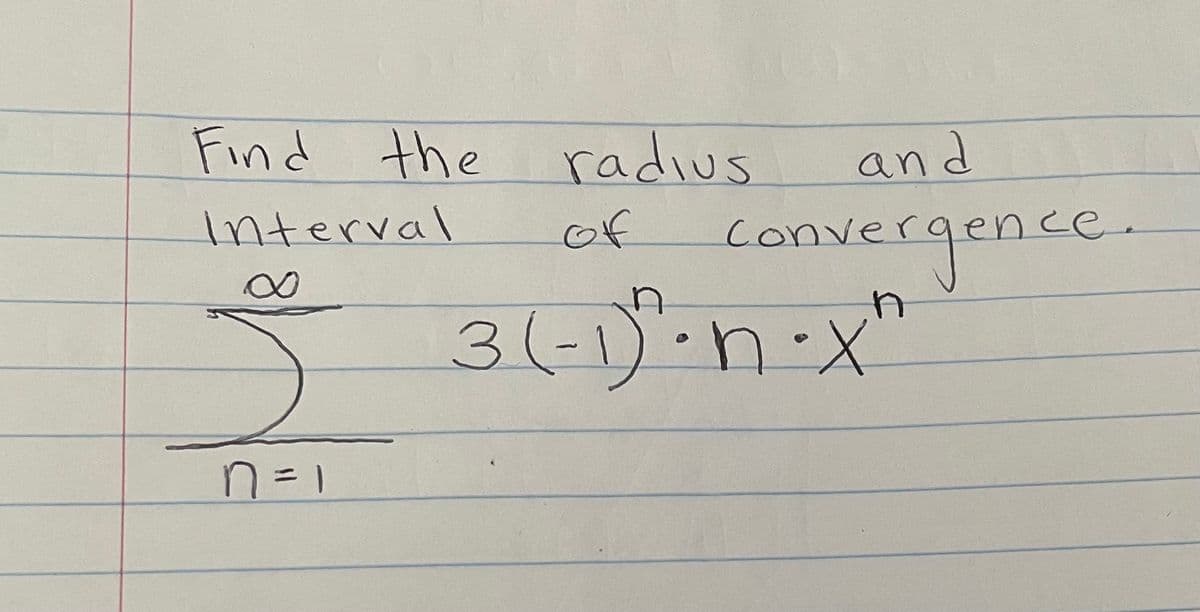 Find the radius and
Interval of convergence.
∞
∑ 3(-1)ⁿ·n·xⁿ
n=1